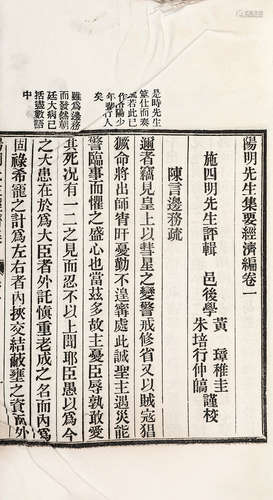 陽明先生集要經濟編卷一
施四明先生評輯 邑後學 黃璋稚圭
朱培行仲皜 謹校
陳言邊務疏
是時先生
筮仕而奏
若此已
作洛陽少
年行人
矣
邇者竊見皇上以彗星之變警戒修省又以賊寇猖
獗命將出師宵旰憂勤不遑寧處此誠聖主遇災能
警臨事而懼之盛心也當茲多故主憂臣辱孰敢愛
雖為邊務
而發然朝
廷大病已
括盡數語
中
其死况有一二之見而忍不以上聞耶臣愚以為今
之大患在於為大臣者外託慎重老成之名而內為
固祿希寵之計為左右者內挾交結蔽壅之資而外